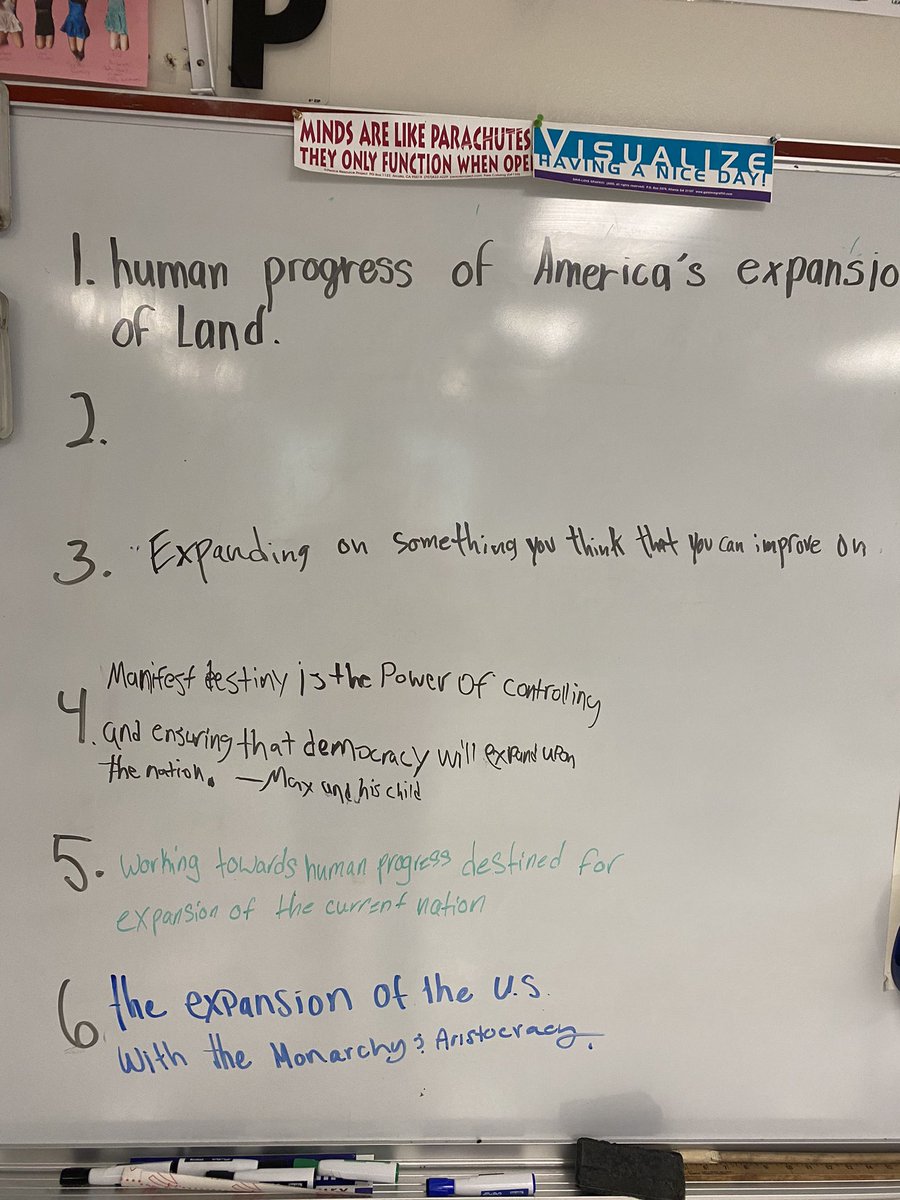 P
MINDS ARE LIKE PARACHUTES
THEY ONLY FUNCTION WHEN OPE
VISUALIZE
HAVING A NICE DAY!
1. human progress of America's expansio
of Land.
2.
3. "Expanding on something you think that you can improve on.
Manifest destiny is the Power of controlling
4. and ensuring that democracy will expand upon
the nation. — Max and his child
5. working towards human progress destined for
expansion of the current nation
6 the expansion of the U.S.
with the Monarchy & Aristocracy.